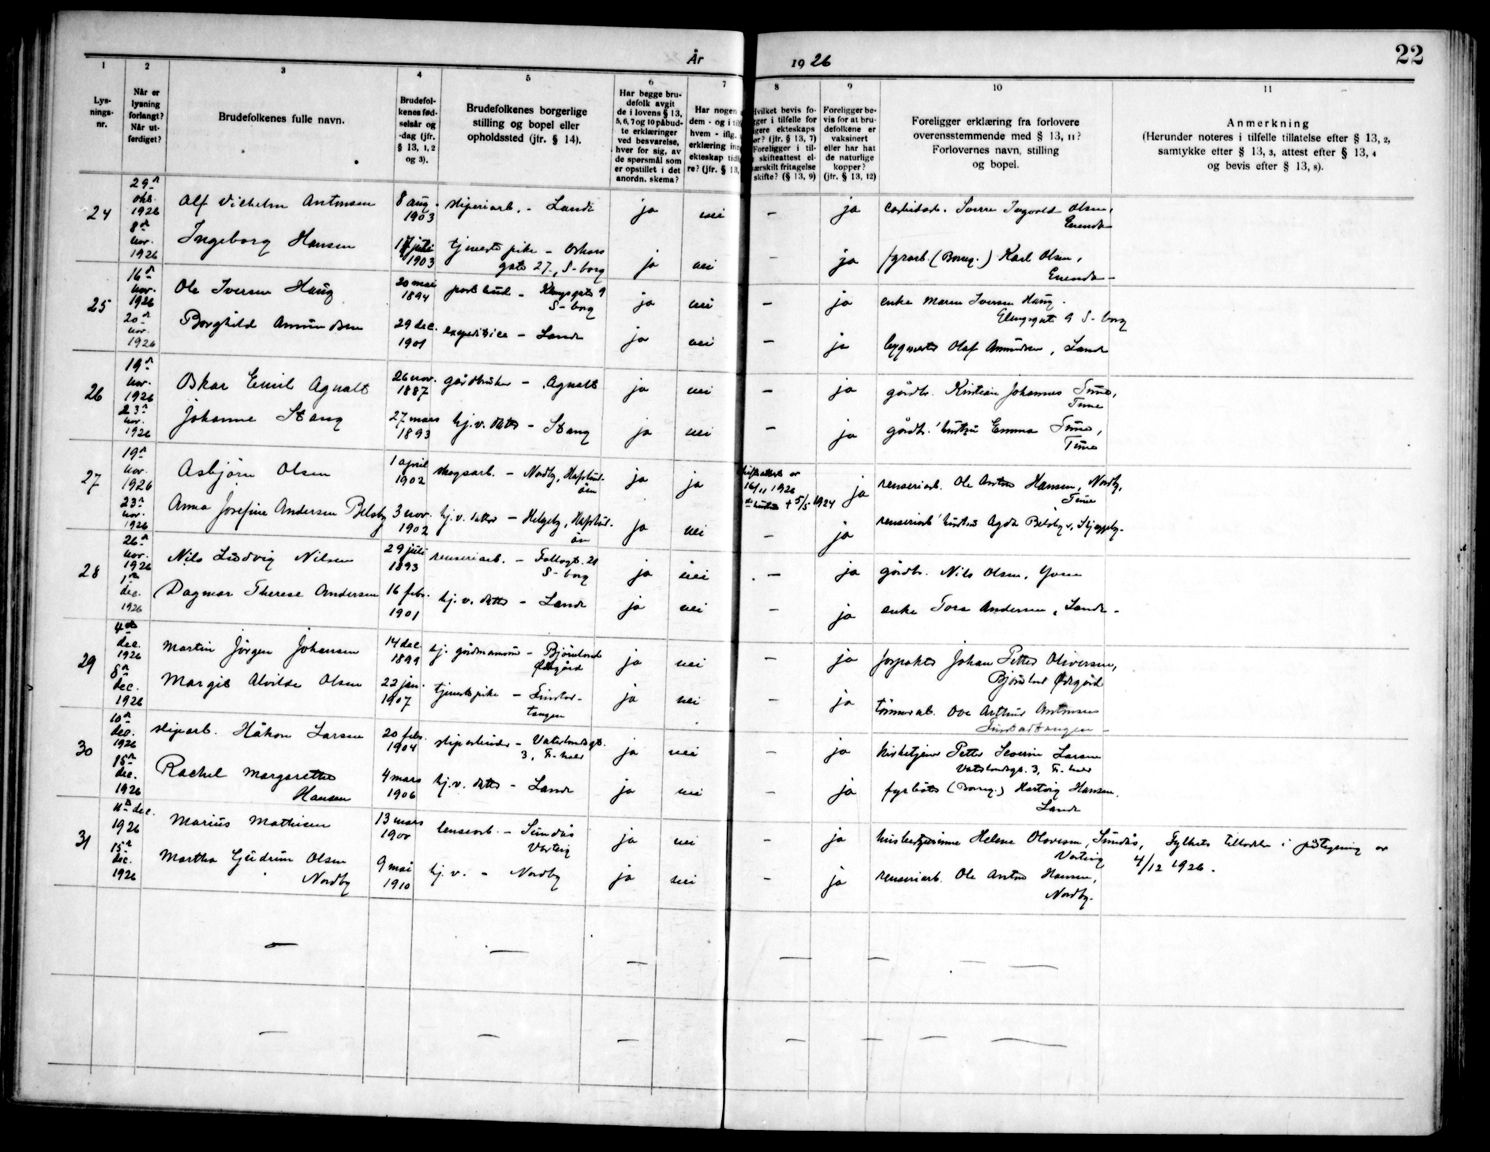 År 1926
22
1 2 3 4 5 6 7 8 9 10 11
Lys-
nings-
nr.
Når er
lysning
forlangt?
Når ut-
ferdiget?
Brudefolkenes fulle navn.
Brudefol-
kenes fød-
selsår og
-dag (jfr.
§ 13, 1, 2
og 3).
Brudefolkenes borgerlige
stilling og bopel eller
opholdssted (jfr. § 14).
Har begge bru-
defolk avgit
de i lovens § 13,
5, 6, 7 og 10 påbud-
te erklæringer
ved besvarelse,
hver for sig, av
de spørsmål som
er opstillet i det
anordn. skema?
Har nogen
dem - og i til
hvem - iflg.
erklæring inn
ekteskap tidl
re? (jfr. § 13,
Hvilket bevis fo-
ger i tilfelle for
gere ekteskaps
er? (§ 13, 7)
Foreligger i til-
skifteattest el-
ærskilt fritagelse
skifte? (§ 13, 9)
Foreligger be-
vis for at bru-
defolkene er
vaksinert
eller har hat
de naturlige
kopper?
(jfr. § 13, 12)
Foreligger erklæring fra forlovere
overensstemmende med § 13, 11?
Forlovernes navn, stilling
og bopel.
Anmerkning
(Herunder noteres i tilfelle tillatelse efter § 13, 2,
samtykke efter § 13, 3, attest efter § 13, 4
og bevis efter § 13, 8).
24 29 okt. 1926 Alf Vilhelm Antonsen 8 aug. 1903 sliperiarb. - Lande ja nei - ja Sverre Ingvald Olsen,
8 nov. 1926 Ingeborg Hansen 17 juli 1903 tjenestepike - Oskars
gate 27, S-borg ja nei - ja fyrarb. (Borreg.) Karl Olsen,
25 16 nov. 1926 Ole Iversen Haug 20 mai 1894 postbud - 9
S-borg ja nei - ja enke Maren Iversen Haug
9 S-borg
20 nov. 1926 Borghild Amundsen 29 dec. 1901 expeditrice - Lande ja nei - ja bygmester Olaf Amundsen, Lande
26 19 nov. 1926 Oskar Emil Agnalt 26 nov. 1887 gårdbruker - Agnalt ja nei - ja gårdb. Kristian Johannes Tune,
Tune
23 nov. 1926 Johanne Stang 27 mars 1893 hj.v. datter - Stang ja nei - ja gårdb. hustru Emma Tune,
Tune
27 19 nov. 1926 Asbjørn Olsen 1 april 1902 skogsarb. - Nordby, Hafslund-
øen ja ja skifteattest av
16/11 1926
hustru † 5/5 1924 ja renseriarb. Ole Anton Hansen, Nordby,
Tune
23 nov. 1926 Anna Josefine Andersen Belsby 3 nov. 1902 hj.v. datter - Helgeby, Hafslund-
øen ja nei - ja renseriarb. hustru Agda Belsby, Skjeggeby.
28 26 nov. 1926 Nils Ludvig Nilsen 29 juli 1893 renseriarb. -
S-borg ja nei - ja gårdb. Nils Olsen, Yven
1 dec. 1926 Dagmar Therese Andersen 16 febr. 1901 hj.v. datter - Lande ja nei - ja enke Tora Andersen, Lande
29 4 dec. 1926 Martin Jørgen Johansen 14 dec. 1899 hj. gårdmannssøn - Bjørnland
Ødegård ja nei - ja forpakter Johan Petter Oliversen,
Bjørnland Ødegård
8 dec. 1926 Margit Alvilde Olsen 22 jan. 1907 tjenestepike -
tangen ja nei - ja tømmerarb. Ove Arthur Antonsen
30 10 dec. 1926 sliparb. Håkon Larsen 20 febr. 1904 - Vaterlandsgt.
3, F-stad ja nei - ja kirketjener Petter Severin Larsen
Vaterlandsgt. 3, F-stad
15 dec. 1926 Rachel Margarethe
Hansen 4 mars 1906 hj.v. datter - Lande ja nei - ja fyrbøter (Borreg.) Hartvig Hansen.
Lande
31 11 dec. 1926 Marius Mathisen 13 mars 1900 lensearb. - Sundås
Varteig ja nei - ja husbestyrerinne Helene Olavesen, Sundås,
Varteig Fylkets tilladelse i påtegning av
4/12 1926.
15 dec. 1926 Martha Gudrun Olsen
Nordby 9 mai 1910 hj.v. - Nordby ja nei - ja renseriarb. Ole Anton Hansen,
Nordby.